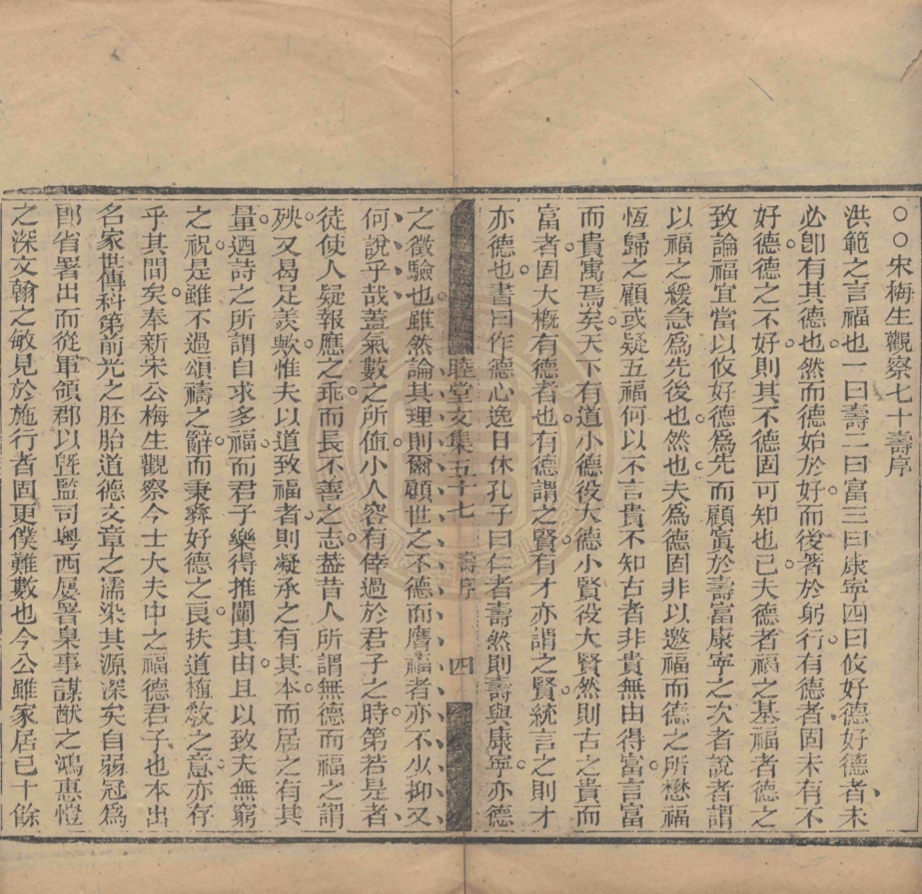 ○○宋梅生觀察七十壽序
洪範之言福也一曰壽二曰富三曰康寧四曰攸好德好德者未
必卽有其德也然而德始於好而後著於躬行有德者固未有不
好德德之不好則其不德固可知也已夫德者福之基福者德之
致論福宜當以攸好德爲先而顧寘於壽富康寧之次者說者謂
以福之緩急爲先後也然也夫爲德固非以邀福而德之所懋福
恆歸之顧或疑五福何以不言貴不知古者非貴無由得富言富
而貴寓焉矣天下有道小德役大德小賢役大賢然則古之貴而
富者固大槪有德者也有德謂之賢有才亦謂之賢統言之則才
亦德也書曰作德心逸日休孔子曰仁者壽然則壽與康寧亦德
睦堂文集五十七 壽序 四
之徵驗也雖然論其理則爾顧世之不德而膺福者亦不少抑又
何說乎哉蓋氣數之所値小人容有倖過於君子之時第若是者
徒使人疑報應之乖而長不善之志葢昔人所謂無德而福之謂
殃又曷足羨歟惟夫以道致福者則凝承之有其本而居之有其
量迺詩之所謂自求多福而君子樂得推闡其由且以致夫無窮
之祝是雖不過頌禱之辭而秉彝好德之良扶道植敎之意亦存
乎其間矣奉新宋公梅生觀察今士大夫中之福德君子也本出
名家世傳科第前光之胚胎道德文章之濡染其源深矣自弱冠爲
郎省署出而從軍領郡以曁監司粵西屢署臬事謀猷之鴻惠愷
之深文翰之敏見於施行者固更僕難數也今公雖家居已十餘